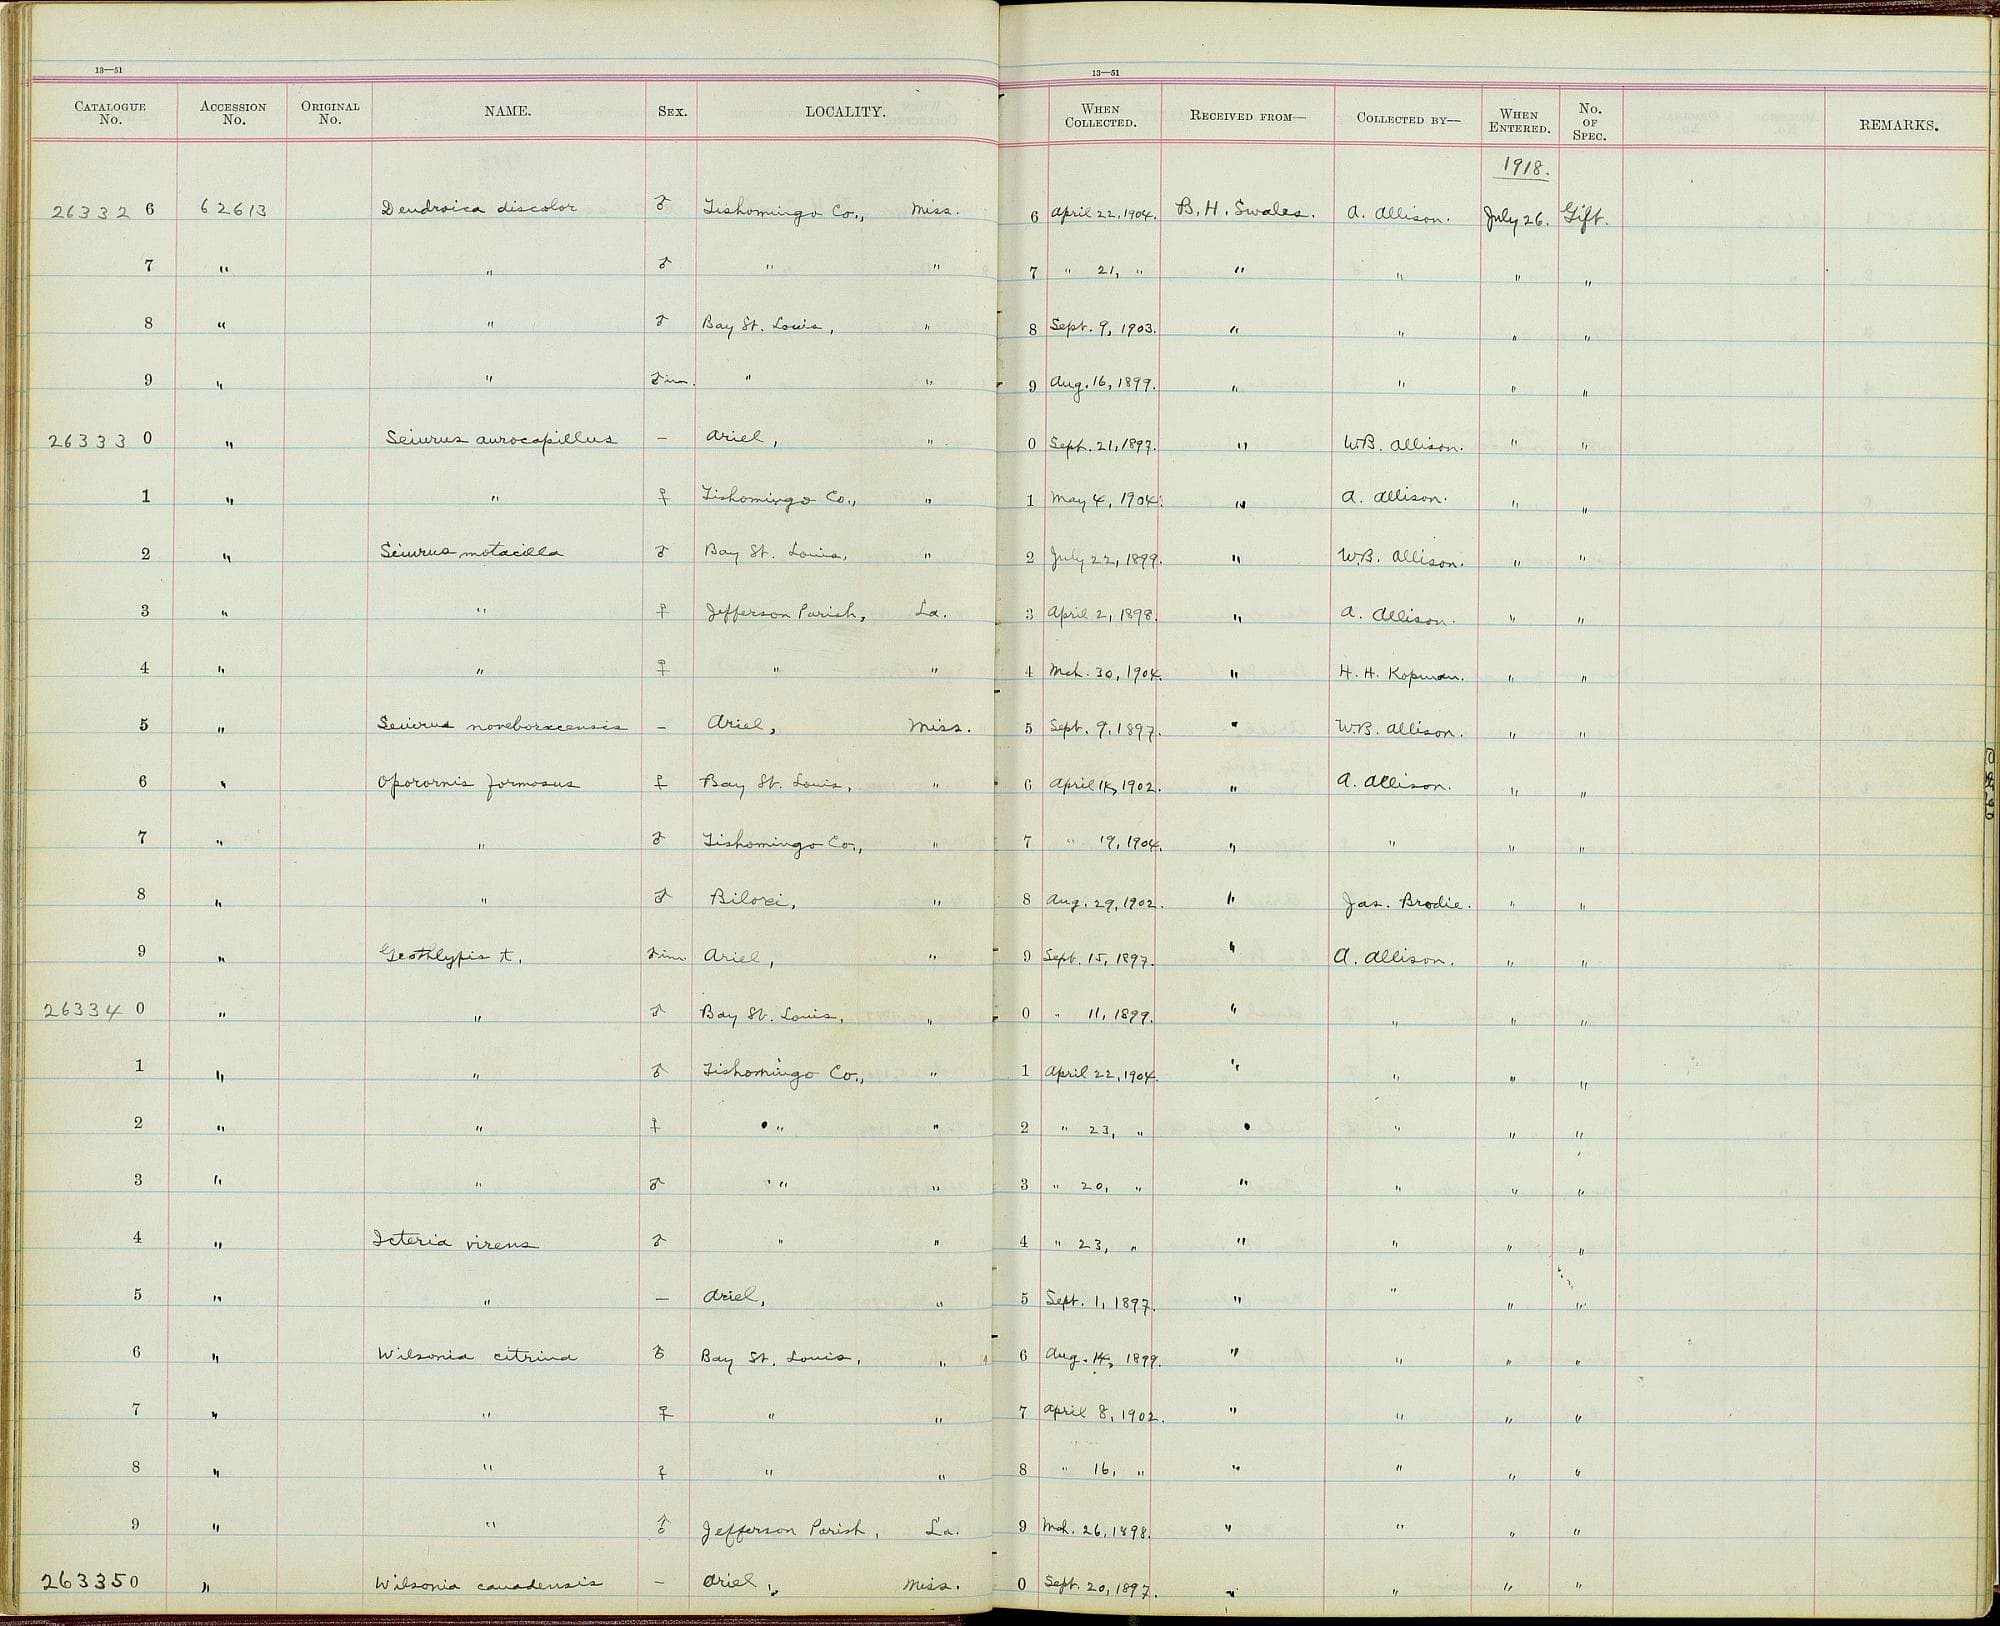 13—51 13—51
CATALOGUE No. ACCESSION No. ORIGINAL No. NAME. SEX. LOCALITY. WHEN COLLECTED. RECEIVED FROM— COLLECTED BY— WHEN ENTERED. No. OF SPEC. REMARKS.
1918.
26332 6 62613 Dendroica discolor ♂ Tishomingo Co., Miss. 6 April 22, 1904. B. H. Swales. A. Allison. July 26. Gift.
7 " " ♂ " " 7 " 21, " " " " "
8 " " ♂ Bay St. Louis, " 8 Sept. 9, 1903. " " " "
9 " " ♂ im. " " 9 Aug. 16, 1899. " " " "
26333 0 " Seiurus aurocapillus — Ariel, " 0 Sept. 21, 1897. " W.B. Allison. " "
1 " " ♀ Tishomingo Co., " 1 May 4, 1904. " A. Allison. " "
2 " Seiurus motacilla ♂ Bay St. Louis, " 2 July 22, 1899. " W.B. Allison. " "
3 " " ♀ Jefferson Parish, La. 3 April 2, 1898. " A. Allison. " "
4 " " ♀ " " 4 Mch. 30, 1904. " H. H. Kopman. " "
5 " Seiurus noveboracensis — Ariel, Miss. 5 Sept. 9, 1897. " W.B. Allison. " "
6 " Oporornis formosus ♀ Bay St. Louis, " 6 April 14, 1902. " A. Allison. " "
7 " " ♂ Tishomingo Co., " 7 " 19, 1904. " " " "
8 " " ♂ Biloxi, " 8 Aug. 29, 1902. " Jas. Brodie. " "
9 " Geothlypis t. ♂ im Ariel, " 9 Sept. 15, 1897. " A. Allison. " "
26334 0 " " ♂ Bay St. Louis, " 0 " 11, 1899. " " " "
1 " " ♂ Tishomingo Co., " 1 April 22, 1904. " " " "
2 " " ♀ " " 2 " 23, " " " " "
3 " " ♂ " " 3 " 20, " " " " "
4 " Icteria virens ♂ " " 4 " 23, " " " " "
5 " " — Ariel, " 5 Sept. 1, 1897. " " " "
6 " Wilsonia citrina ♂ Bay St. Louis, " 6 Aug. 14, 1899. " " " "
7 " " ♀ " " 7 April 8, 1902. " " " "
8 " " ♀ " " 8 " 16, " " " " "
9 " " ♂ Jefferson Parish, La. 9 Mch. 26, 1898. " " " "
26335 0 " Wilsonia canadensis — Ariel, Miss. 0 Sept. 20, 1897. " " " "